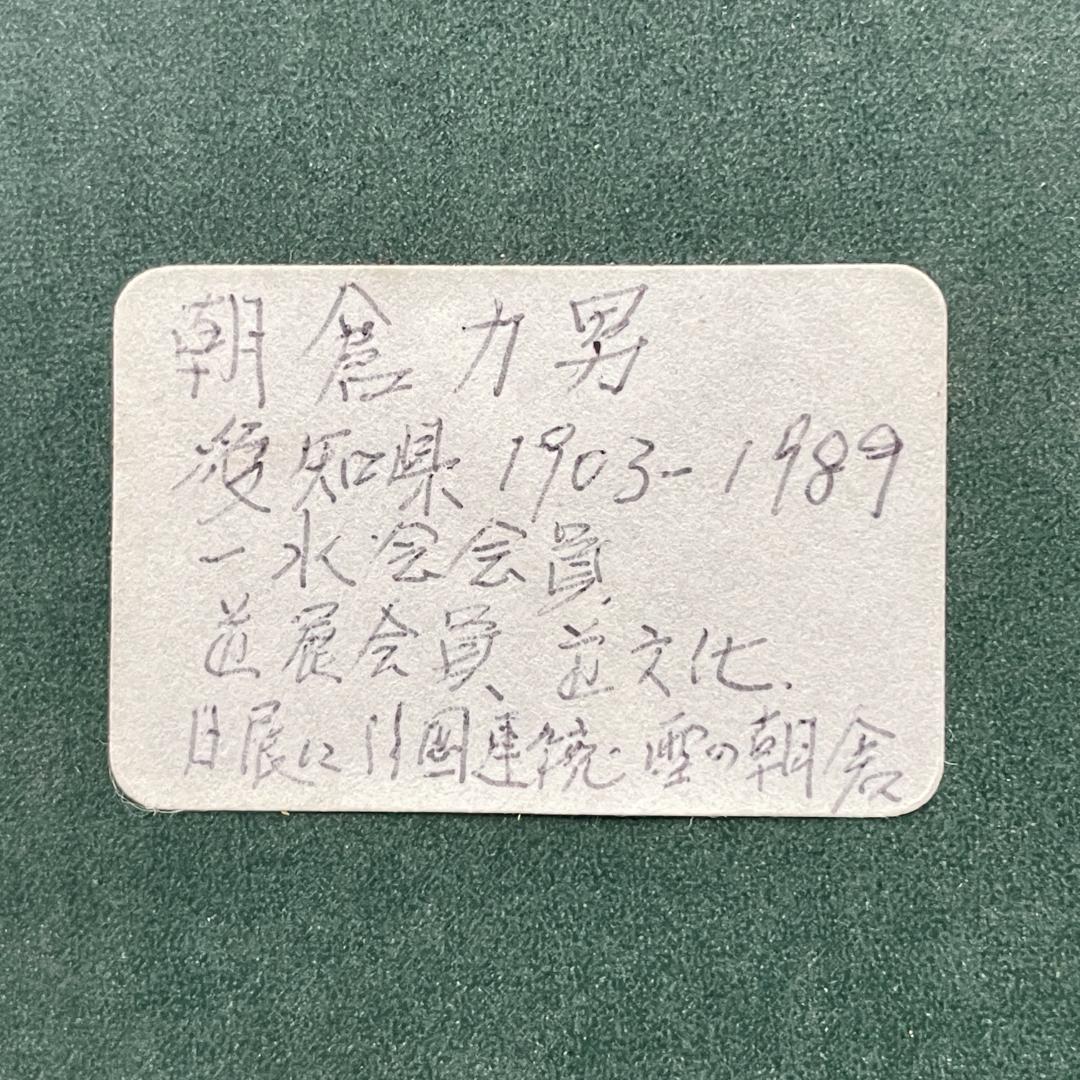 朝倉力男
愛知県 1903-1989
一水会会員
道展会員、道文化、
日展に11回連続 雪の朝倉